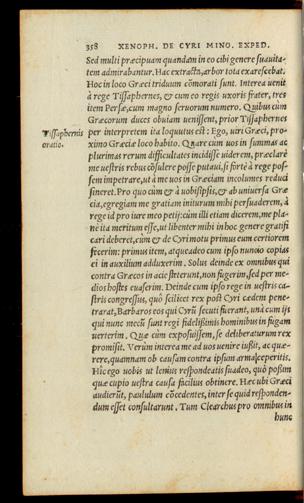 358 XENOPH. DE CYRI MINO. EXPED.
Sed multi præcipuam quandam in eo cibi genere suauita-
tem admirabantur. Hac extracta, arbor tota exarescebat.
Hoc in loco Græci triduum cōmorati sunt. Interea uenit
à rege Tissaphernes, & cum eo regis uxoris frater, tres
item Persæ, cum magno seruorum numero. Quibus cùm
Græcorum duces obuiam uenissent, prior Tissaphernes
Tissaphernis
oratio.
per interpretem ita loquutus est: Ego, uiri Græci, pro-
ximo Græciæ loco habito. Quare cum uos in summas ac
plurimas rerum difficultates incidisse uiderem, præclarè
me uestris rebus cōsulere posse putaui, si fortè à rege pos-
sem impetrare, ut à me uos in Græciam incolumes reduci
sineret. Pro quo cùm & à uobisipsis, & ab uniuersa Græ-
cia, egregiam me gratiam initurum mihi persuaderem, à
rege id pro iure meo petij: cùm illi etiam dicerem, me pla-
nè ita meritum esse, ut libenter mihi in hoc genere gratifi
cari deberet, cùm & de Cyri motu primus eum certiorem
fecerim: primus item, atque adeo cum ipso nuncio copias
ei in auxilium adduxerim. Solus deinde ex omnibus qui
contra Græcos in acie steterunt, non fugerim, sed per me-
dios hostes euaserim. Deinde cum ipso rege in uestris ca-
stris congressus, quò scilicet rex post Cyri cædem pene-
trarat, Barbaros eos qui Cyrū secuti fuerant, unà cum ijs
qui nunc mecū sunt regi fidelissimis hominibus in fugam
uerterim. Quæ cùm exposuissem, se deliberaturum rex
promisit. Verùm interea me ad uos uenire iussit, ac quæ-
rere, quamnam ob causam contra ipsum arma ceperitis.
Hic ego uobis ut lenius respondeatis suadeo, quò possim
quæ cupio uestra causa facilius obtinere. Hæc ubi Græci
audierūt, paululum cōcedentes, inter se quid responden-
dum esset consultarunt. Tum Clearchus pro omnibus in
hunc